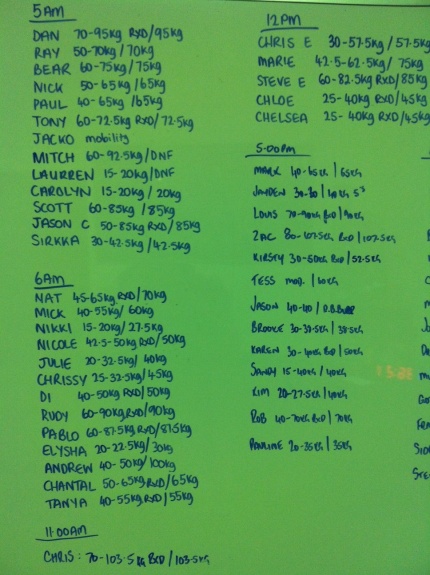 5AM
DAN 70-95kg RXD/95kg
RAY 50-70kg/70kg
BEAR 60-75kg/75kg
NICK 50-65kg/65kg
PAUL 40-65kg/65kg
TONY 60-72.5kg RXD/72.5kg
JACKO mobility
MITCH 60-92.5kg/DNF
LAURREN 15-20kg/DNF
CAROLYN 15-20kg/20kg
SCOTT 60-85kg/85kg
JASON C 50-85kg RXD/85kg
SIRKKA 30-42.5kg/42.5kg
6AM
NAT 45-65kg RXD/70kg
MICK 40-55kg/60kg
NIKKI 15-20kg/27.5kg
NICOLE 42.5-50kg RXD/50kg
JULIE 20-32.5kg/40kg
CHRISSY 25-32.5kg/45kg
DI 40-50kg RXD/50kg
RUDY 60-90kg RXD/90kg
PABLO 60-87.5kg RXD/87.5kg
ELYSHA 20-22.5kg/30kg
ANDREW 40-50kg/100kg
CHANTAL 50-65kg RXD/65kg
TANYA 40-55kg RXD/55kg
11:00AM
CHRIS: 70-103.5kg RXD/103.5kg
12PM
CHRIS E 30-57.5kg/57.5kg
MARIE 42.5-62.5kg/75kg
STEVE E 60-82.5kg RXD/85kg
CHLOE 25-40kg RXD/45kg
CHELSEA 25-40kg RXD/45kg
5:00PM
MARK 40-65kg/65kg
JAYDEN 30-
LOUIS 70-90kg RXD/90kg
ZAC 80-107.5kg RXD/107.5kg
KIRSTY 30-50kg RXD/52.5kg
TESS mod./60kg
JASON 40-40/
BROOKE 30-37.5kg/37.5kg
KAREN 30-40kg RXD/50kg
SANDY 15-40kg/40kg
KIM 20-27.5kg/40kg
ROB 40-70kg RXD/70kg
PAULINE 20-35kg/35kg